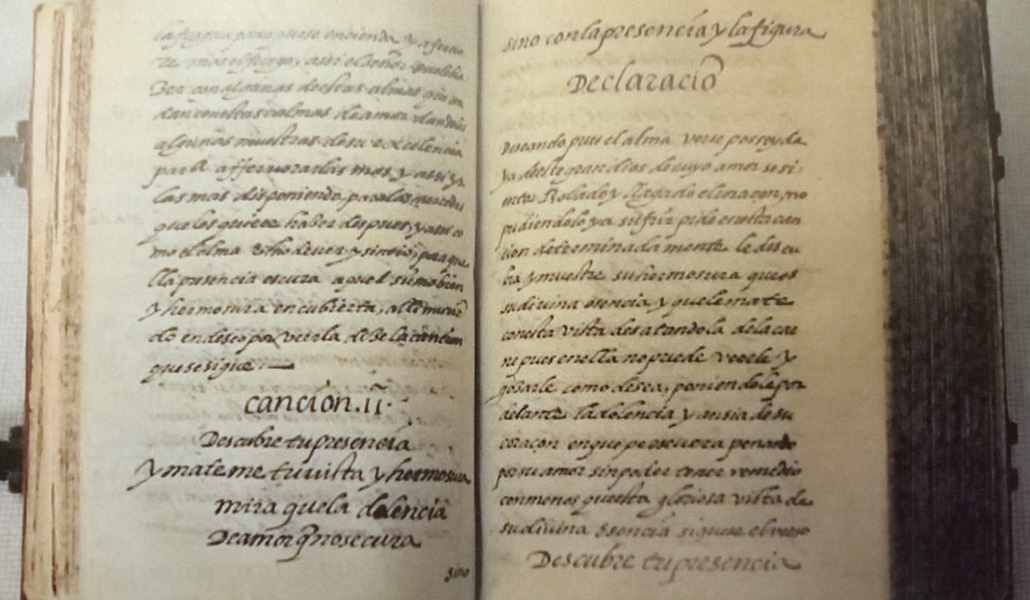 la fragua para que se encienda y afuer
te mas el fuego, assi el señor suele ha
zer con algunas destas almas que an
dan con estas calmas de amor dandoles
algunas muestras de su excelencia
para affervorarlas mas, y assi yr
las mas disponiendo, para las mercedes
que les quiere hazer despues y assi co
mo el alma echo de ver, y sintio por aque
lla presencia escura aquel sumo bien
y hermosura encubierta, alli murien
do en deseo por verla dize la cancion
que se sigue.
cancion.ii.
Descubre tu presencia
y mate me tu vista y hermosura
mira que la dolencia
De amor q̃ no se cura
sino
sino con la presencia y la figura
Declaracio
Deseando pues el alma verse posseyda
ya deste gran dios de cuyo amor se si
ente Robado y llagado el coraçon, no
pudiendolo ya sufrir pide en esta can
cion determinadamente le descu
bra y muestre su hermosura que es
su divina esencia y que le mate
con esta vista desatandola de la car
ne pues en ella no puede verle y
gozarle como desea, poniendole por
delante la dolencia y ansia de su
coraçon en que persevera penando
por su amor sin poder tener remedio
con menos que esta gloriosa vista de
su divina Esencia siguese el verso
Descubre tu presencia